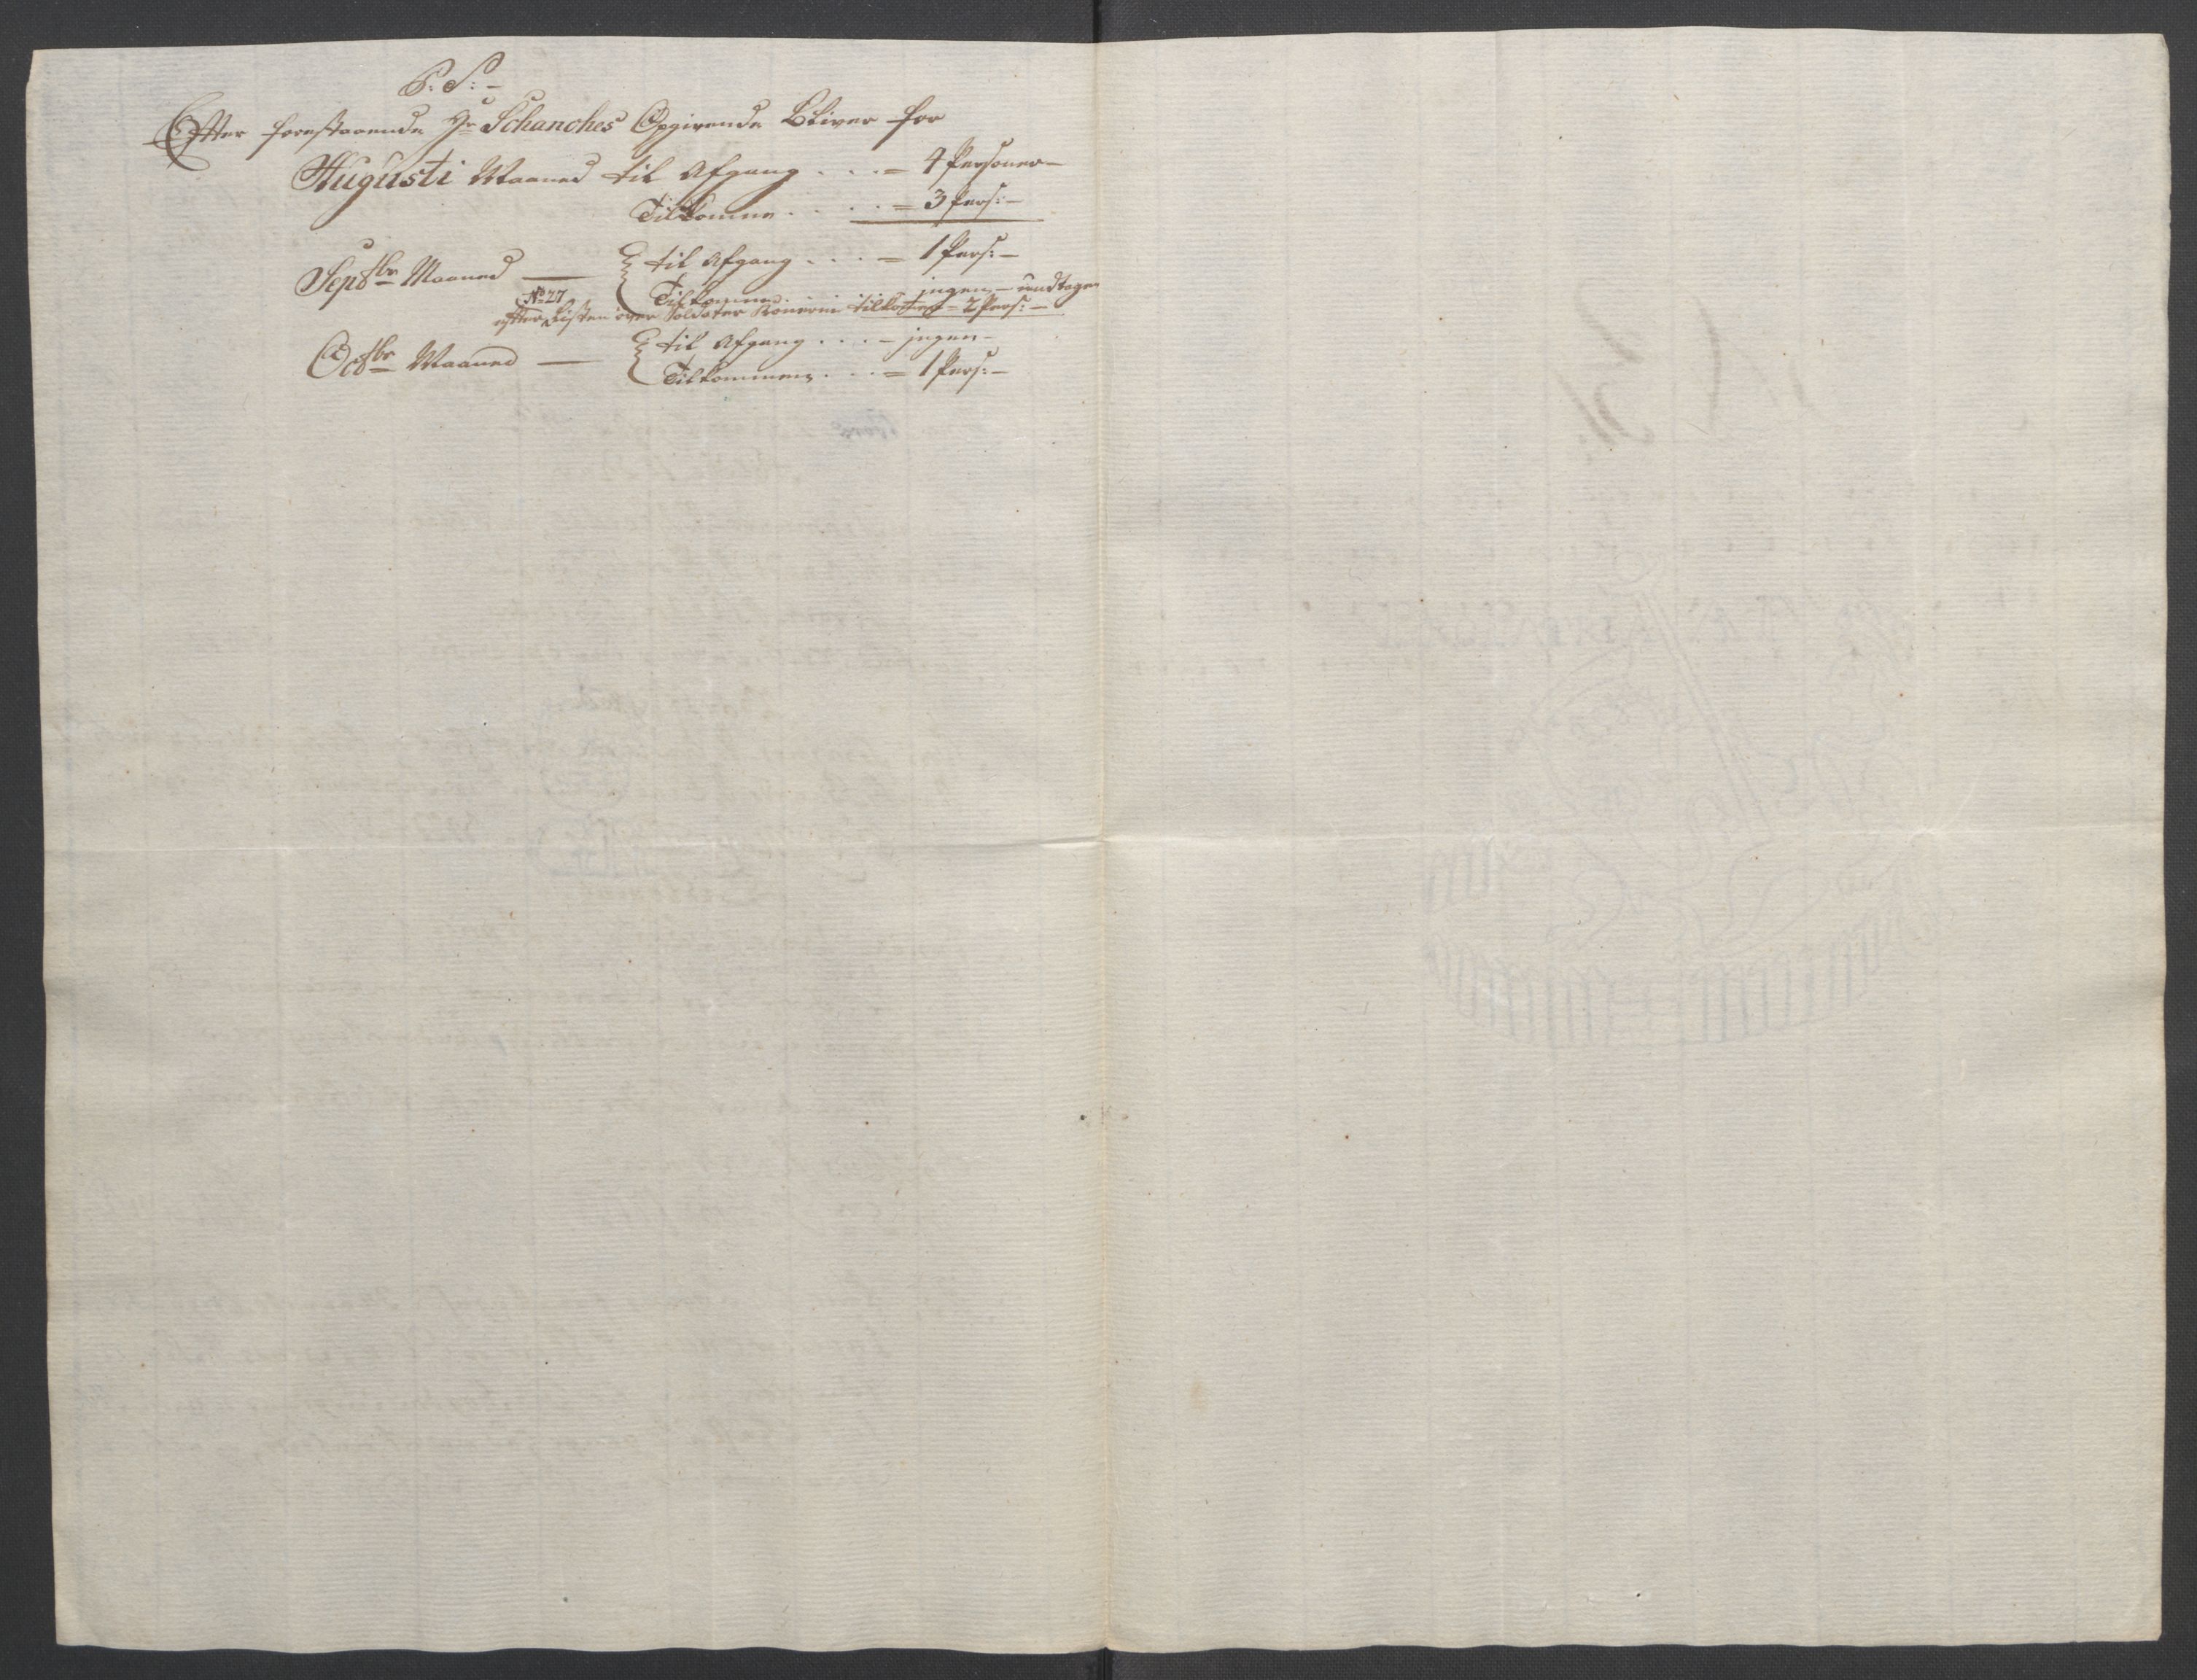 P: S: –
Efter forestaaende Hr Schanches Opgivende Bliver for
Augusti Maaned til Afgang . . . = 4 Personer –
Tilkomne . . . . = 3 Pers: –
Sepbr Maaned — til Afgang . . . = 1 Pers: –
Tilkomne . ingen – undtagen
No 27
efter Listen over Soldater Konerne tilkomen = 2 Pers: –
Octbr Maaned — til Afgang . . . – ingen –
Tilkommen . . . = 1 Pers: –